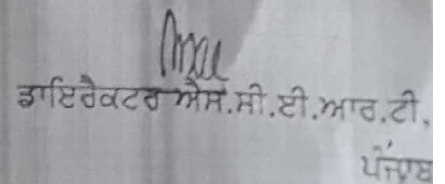 ਡਾਇਰੈਕਟਰ ਐਸ.ਸੀ.ਈ.ਆਰ.ਟੀ,
ਪੰਜਾਬ